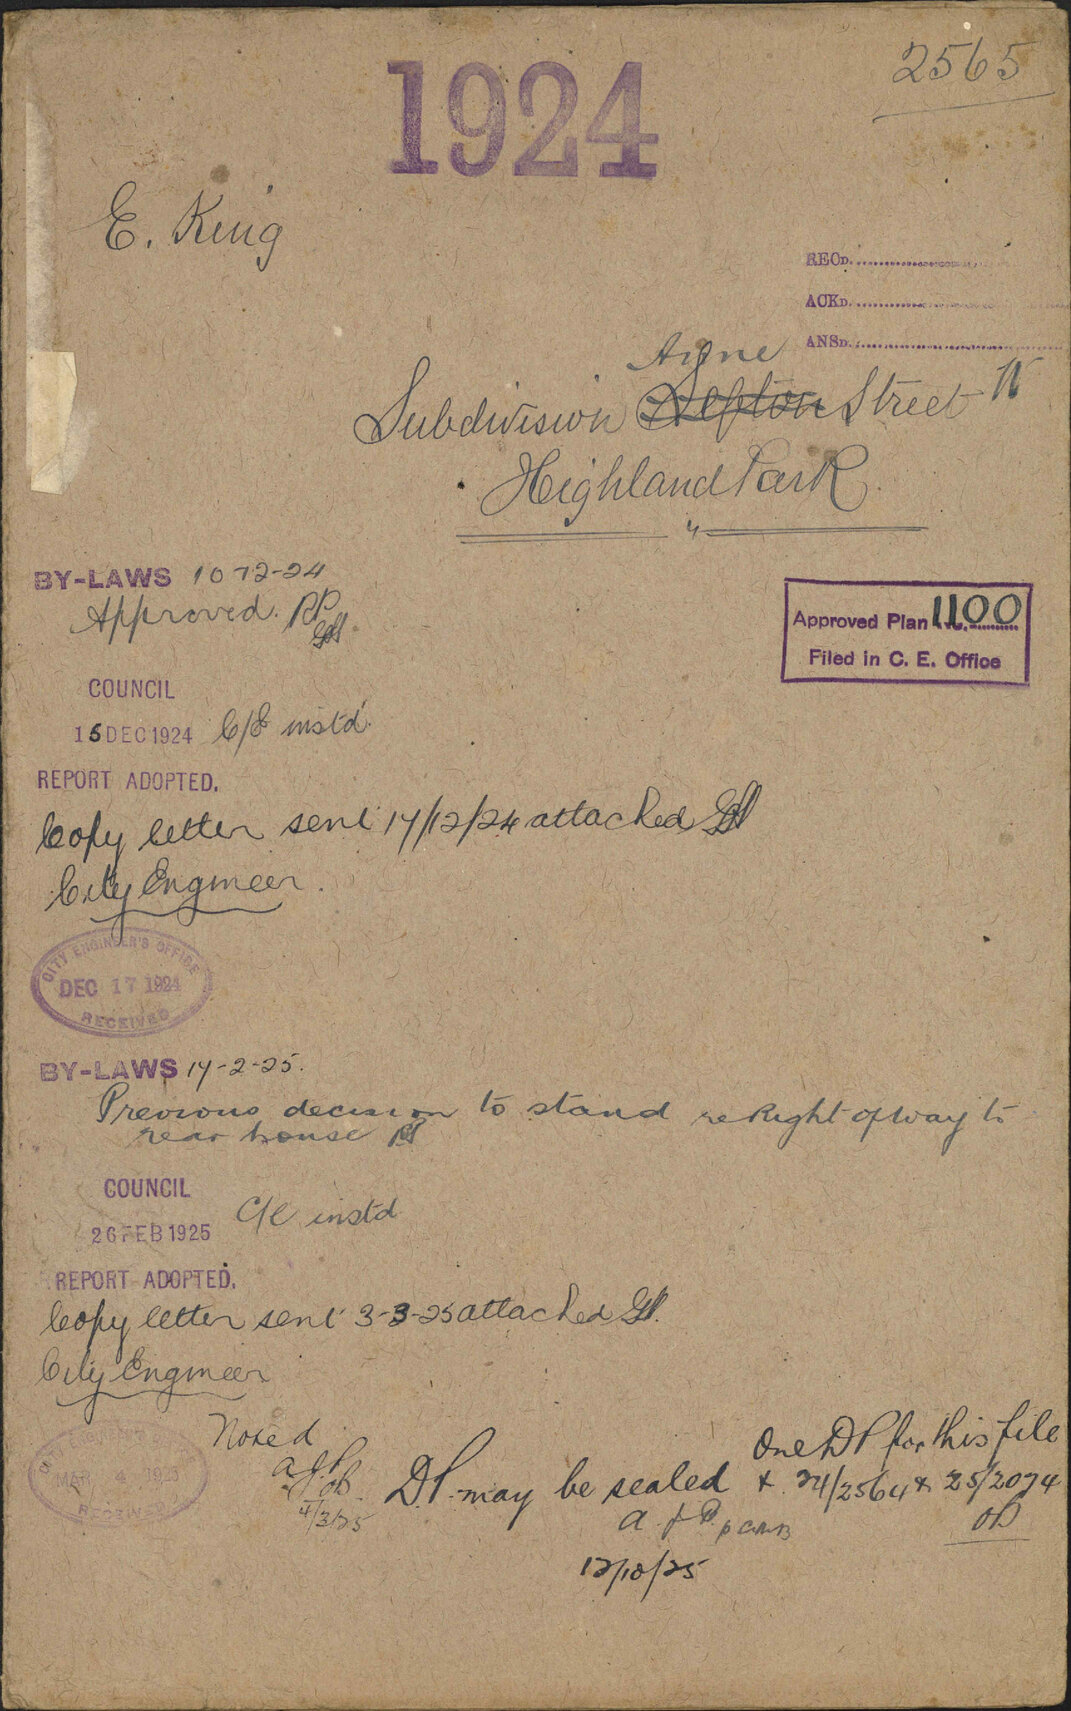 2565
1924
E. King
RECD.
ACKD.
ANSD.
Subdivision Street
Highland Park
BY-LAWS 10-12-24
Approved.
Approved Plan No. 1100
Filed in C. E. Office
COUNCIL
15 DEC 1924 C/E instd.
REPORT ADOPTED.
Copy letter sent 17/12/24 attached
City Engineer.
CITY ENGINEER'S OFFICE
DEC 17 1924
RECEIVED
BY-LAWS 17-2-25.
Previous decision to stand re Right of way to
rear house
COUNCIL
26 FEB 1925 C/E instd
REPORT ADOPTED.
Copy letter sent 3-3-25 attached
City Engineer
MAR 4 1925
RECEIVED
Noted
4/3/25
D.P. may be sealed
12/10/25
One DP for this file
& 24/2564 & 25/2074